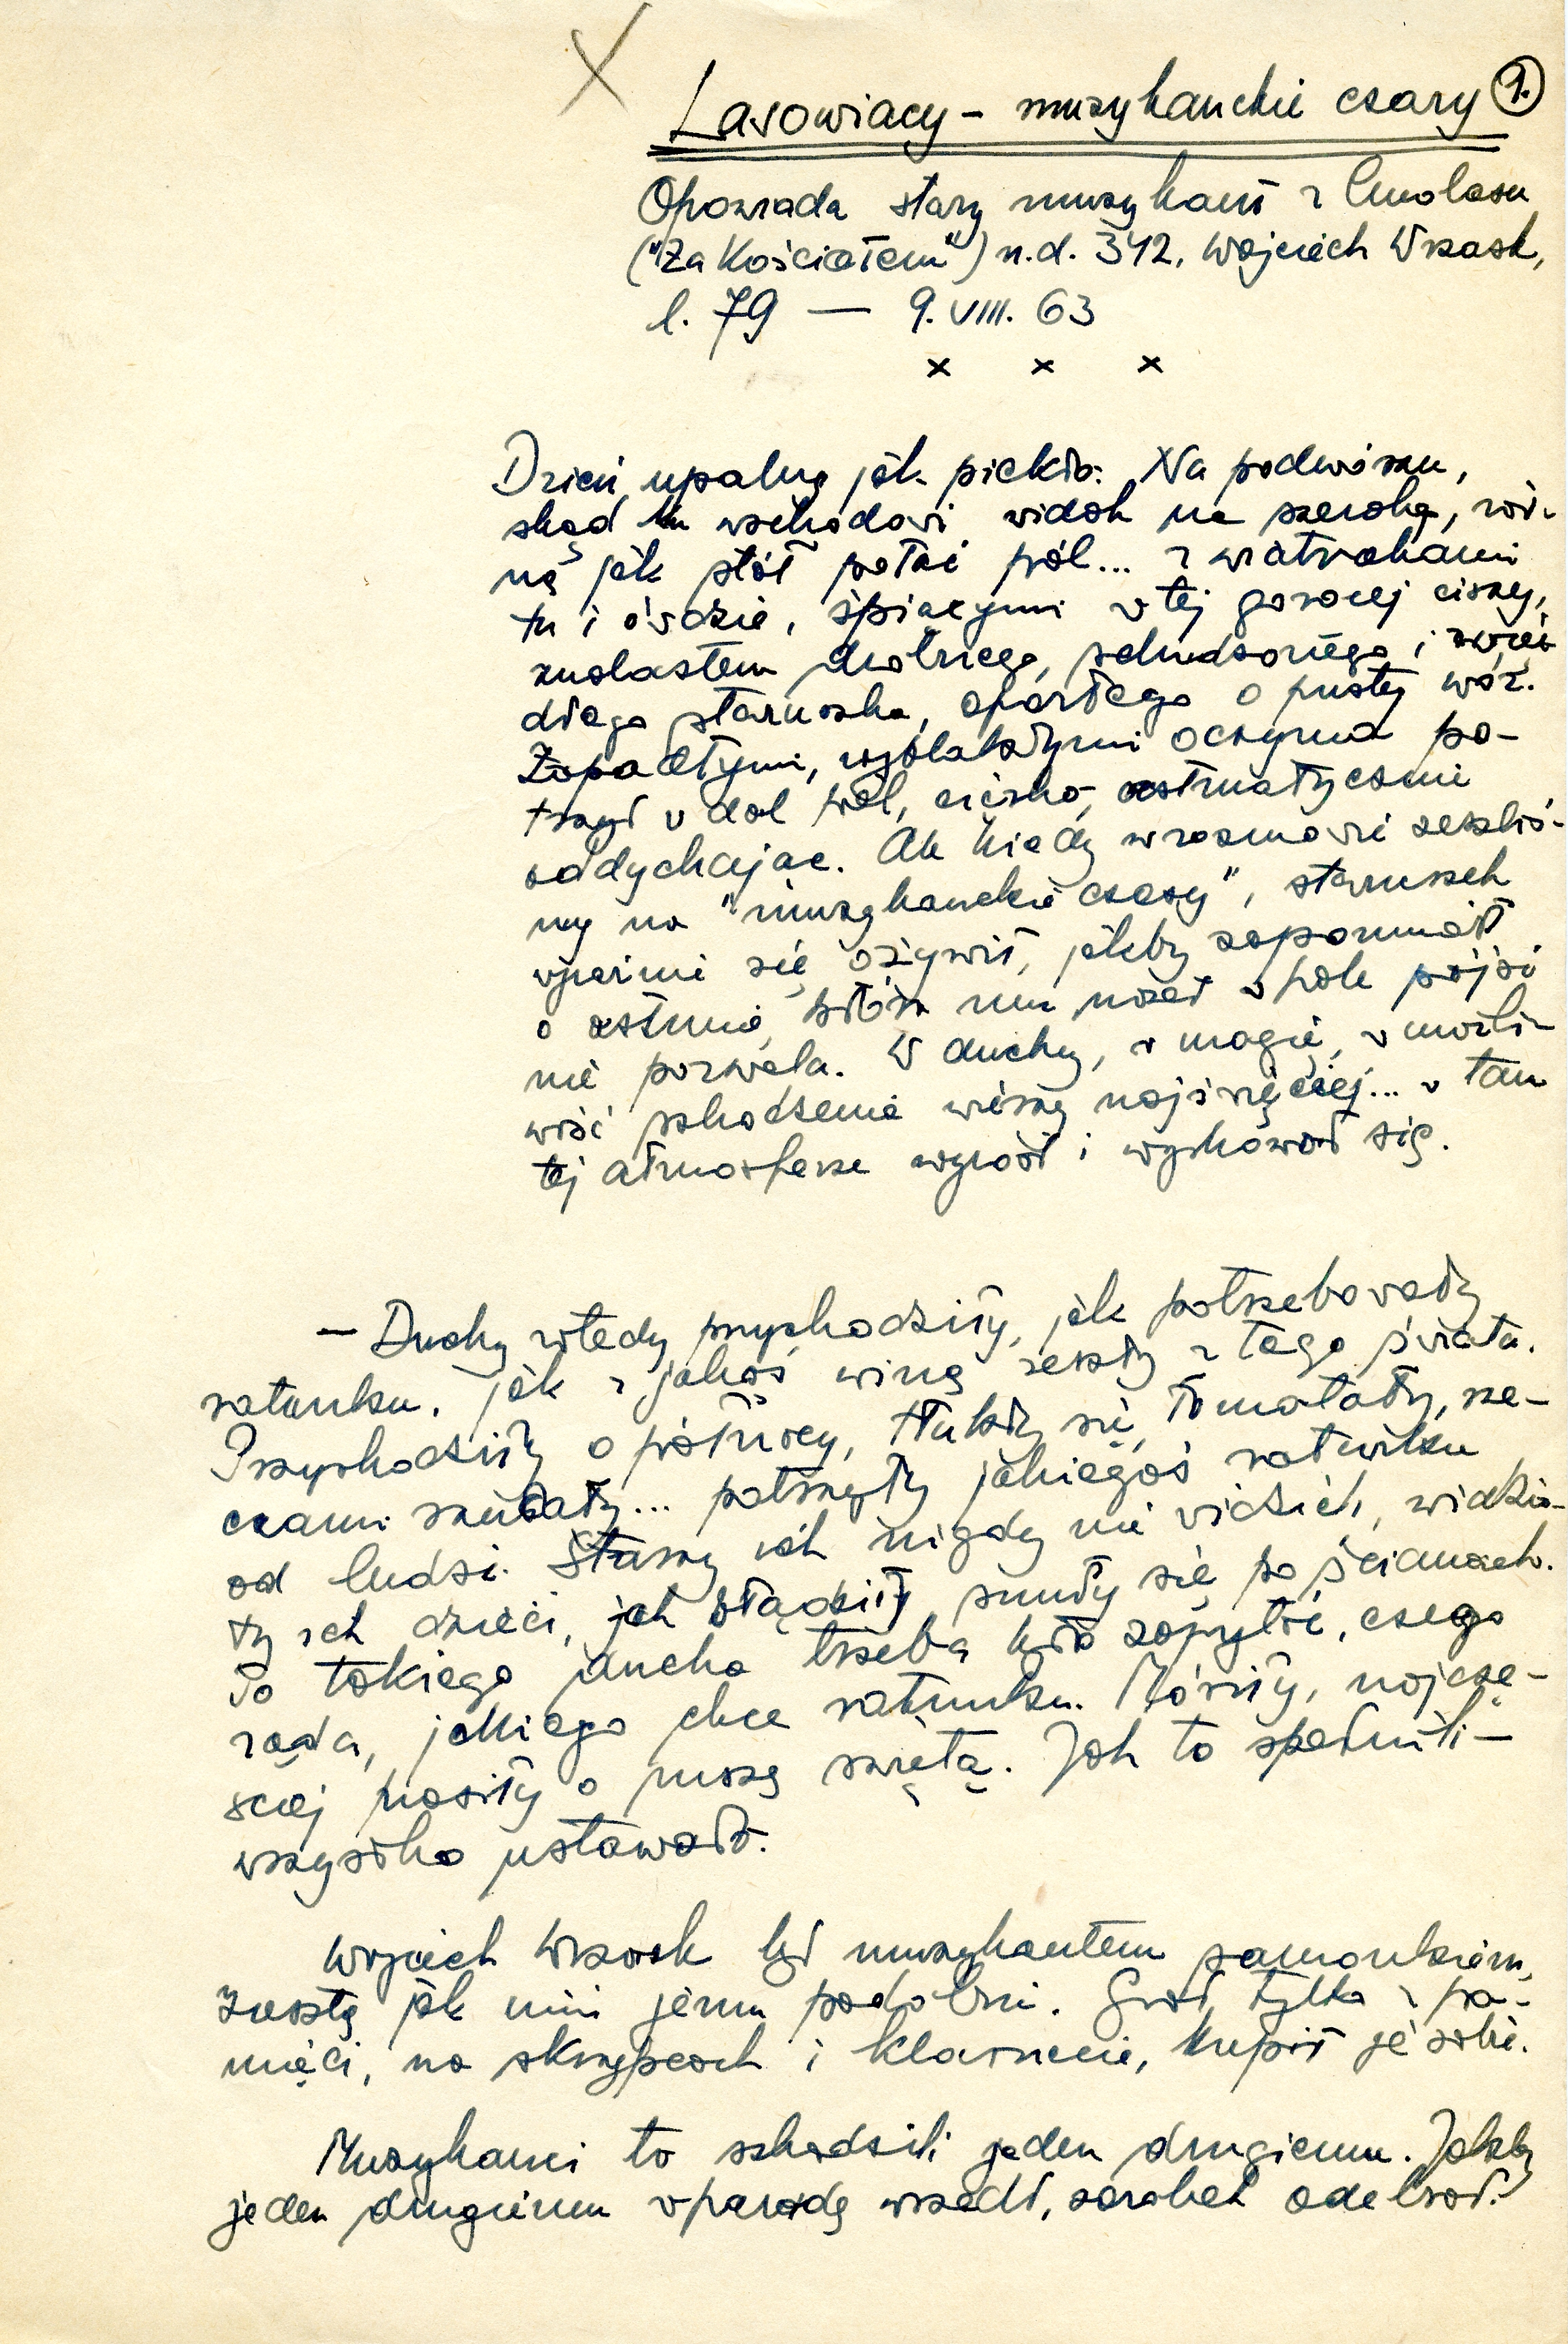 X
Lasowiacy - muzykanckie czary 1.
Opowiada stary muzykant z Cmolasu
("Za Kościołem") n.d. 342, Wojciech Wrzask,
l. 79 — 9. VIII. 63
x x x
Dzień upalny jak piekło. Na podwórzu,
skąd ku wschodowi widok na szeroką, rów-
ną jak stół połać pól... z wiatrakami
tu i ówdzie, śpiącymi w tej gorącej ciszy,
znalazłem drobnego, schudzonego i
dłego staruszka, opartego o pusty wóz.
Zapadłymi, wyblakłymi oczyma pa-
trzył w dal pól, ciężko, astmatycznie
oddychając. Ale kiedy w rozmowie zeszliś-
my na "muzykanckie czasy", staruszek
wyraźnie się ożywił, jakby zapomniał
o astmie, która mu nawet w pole pójść
nie pozwala. W duchy, w magię, w możli-
wość szkodzenia wierzy najświęciej... w
tej atmosferze wyrósł i wychował się.
— Duchy wtedy przychodziły, jak potrzebowały
ratunku, jak z jakąś winą zeszły z tego świata.
Przychodziły o północy, tłukły się, łomotały, rze-
czami rzucały... patrzyły jakiegoś ratunku
od ludzi. Starzy ich nigdy nie widzieli, widzia-
ły ich dzieci, jak błądziły, snuły się po ścianach.
To takiego ducha trzeba było zapytać, czego
żąda, jakiego chce ratunku. Mówiły, najczę-
ściej prosiły o mszę świętą. Jak to spełnili -
wszystko ustawało.
Wojciech Wrzask był muzykantem samoukiem,
zresztą jak inni jemu podobni. Grał tylko z pa-
mięci, na skrzypcach i klarnecie, kupił je sobie.
Muzykanci to szkodzili jeden drugiemu. Jakby
jeden drugiemu w paradę wszedł, zarobek odebrał.